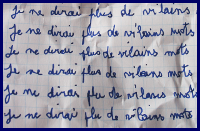 Je ne dirai plus de vilains
Je ne dirai plus de vilains mots
Je ne dirai plus de vilains mots
Je ne dirai plus de vilains mots
Je ne dirai plu de vilains mots
Je ne dirai plu de vilains mots